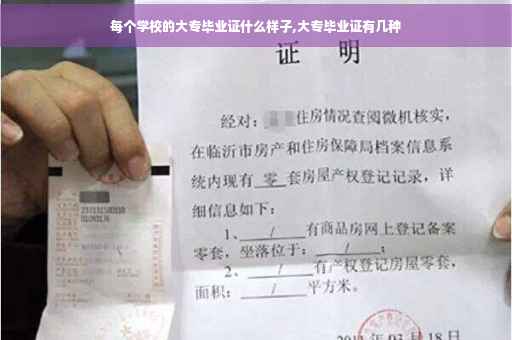 每个学校的大专毕业证什么样子,大专毕业证有几种
证 明
经对: 住房情况查阅微机核实,
在临沂市房产和住房保障局档案信息系
统内现有 零 套房屋产权登记记录,详
细信息如下:
1、 / 有商品房网上登记备案
零套,坐落位于: / ;
2、 / 有产权登记房屋零套,
面积: / 平方米。
03月18日